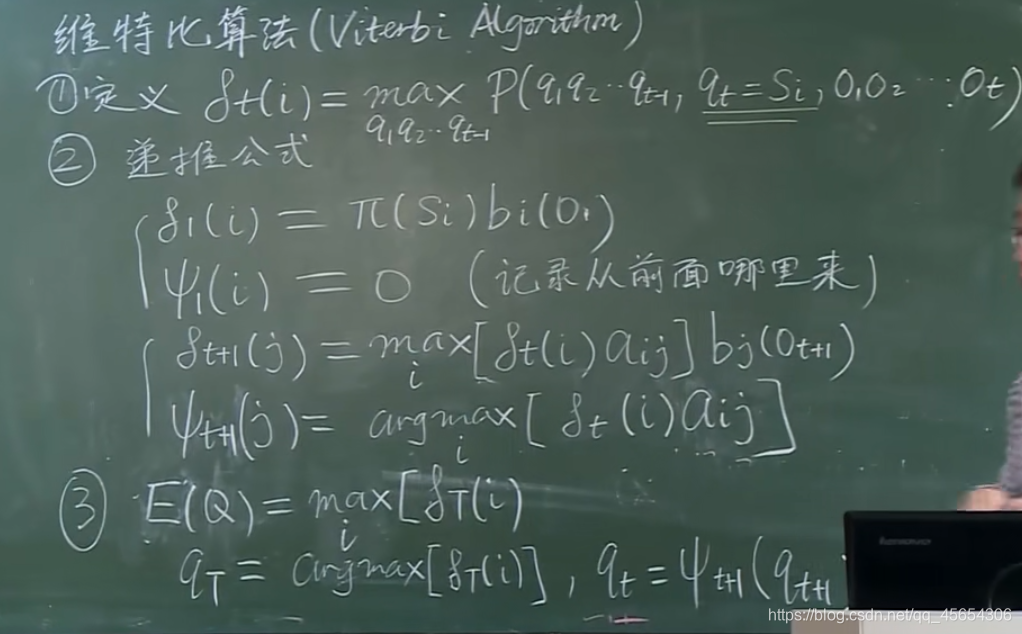 维特比算法(Viterbi Algorithm)
①定义 δt(i) = max P(q1q2··qt-1, qt=Si, O1O2···Ot)
q1q2··qt-1
② 递推公式
δ1(i) = π(Si)bi(O1)
ψ1(i) = 0 (记录从前面哪里来)
δt+1(j) = max[δt(i)aij]bj(Ot+1)
i
ψt+1(j) = argmax[δt(i)aij]
i
③ E(Q) = max[δT(i)
i
qT = argmax[δT(i)], qt = ψt+1(qt+1
lenovo
https://blog.csdn.net/qq_45654306